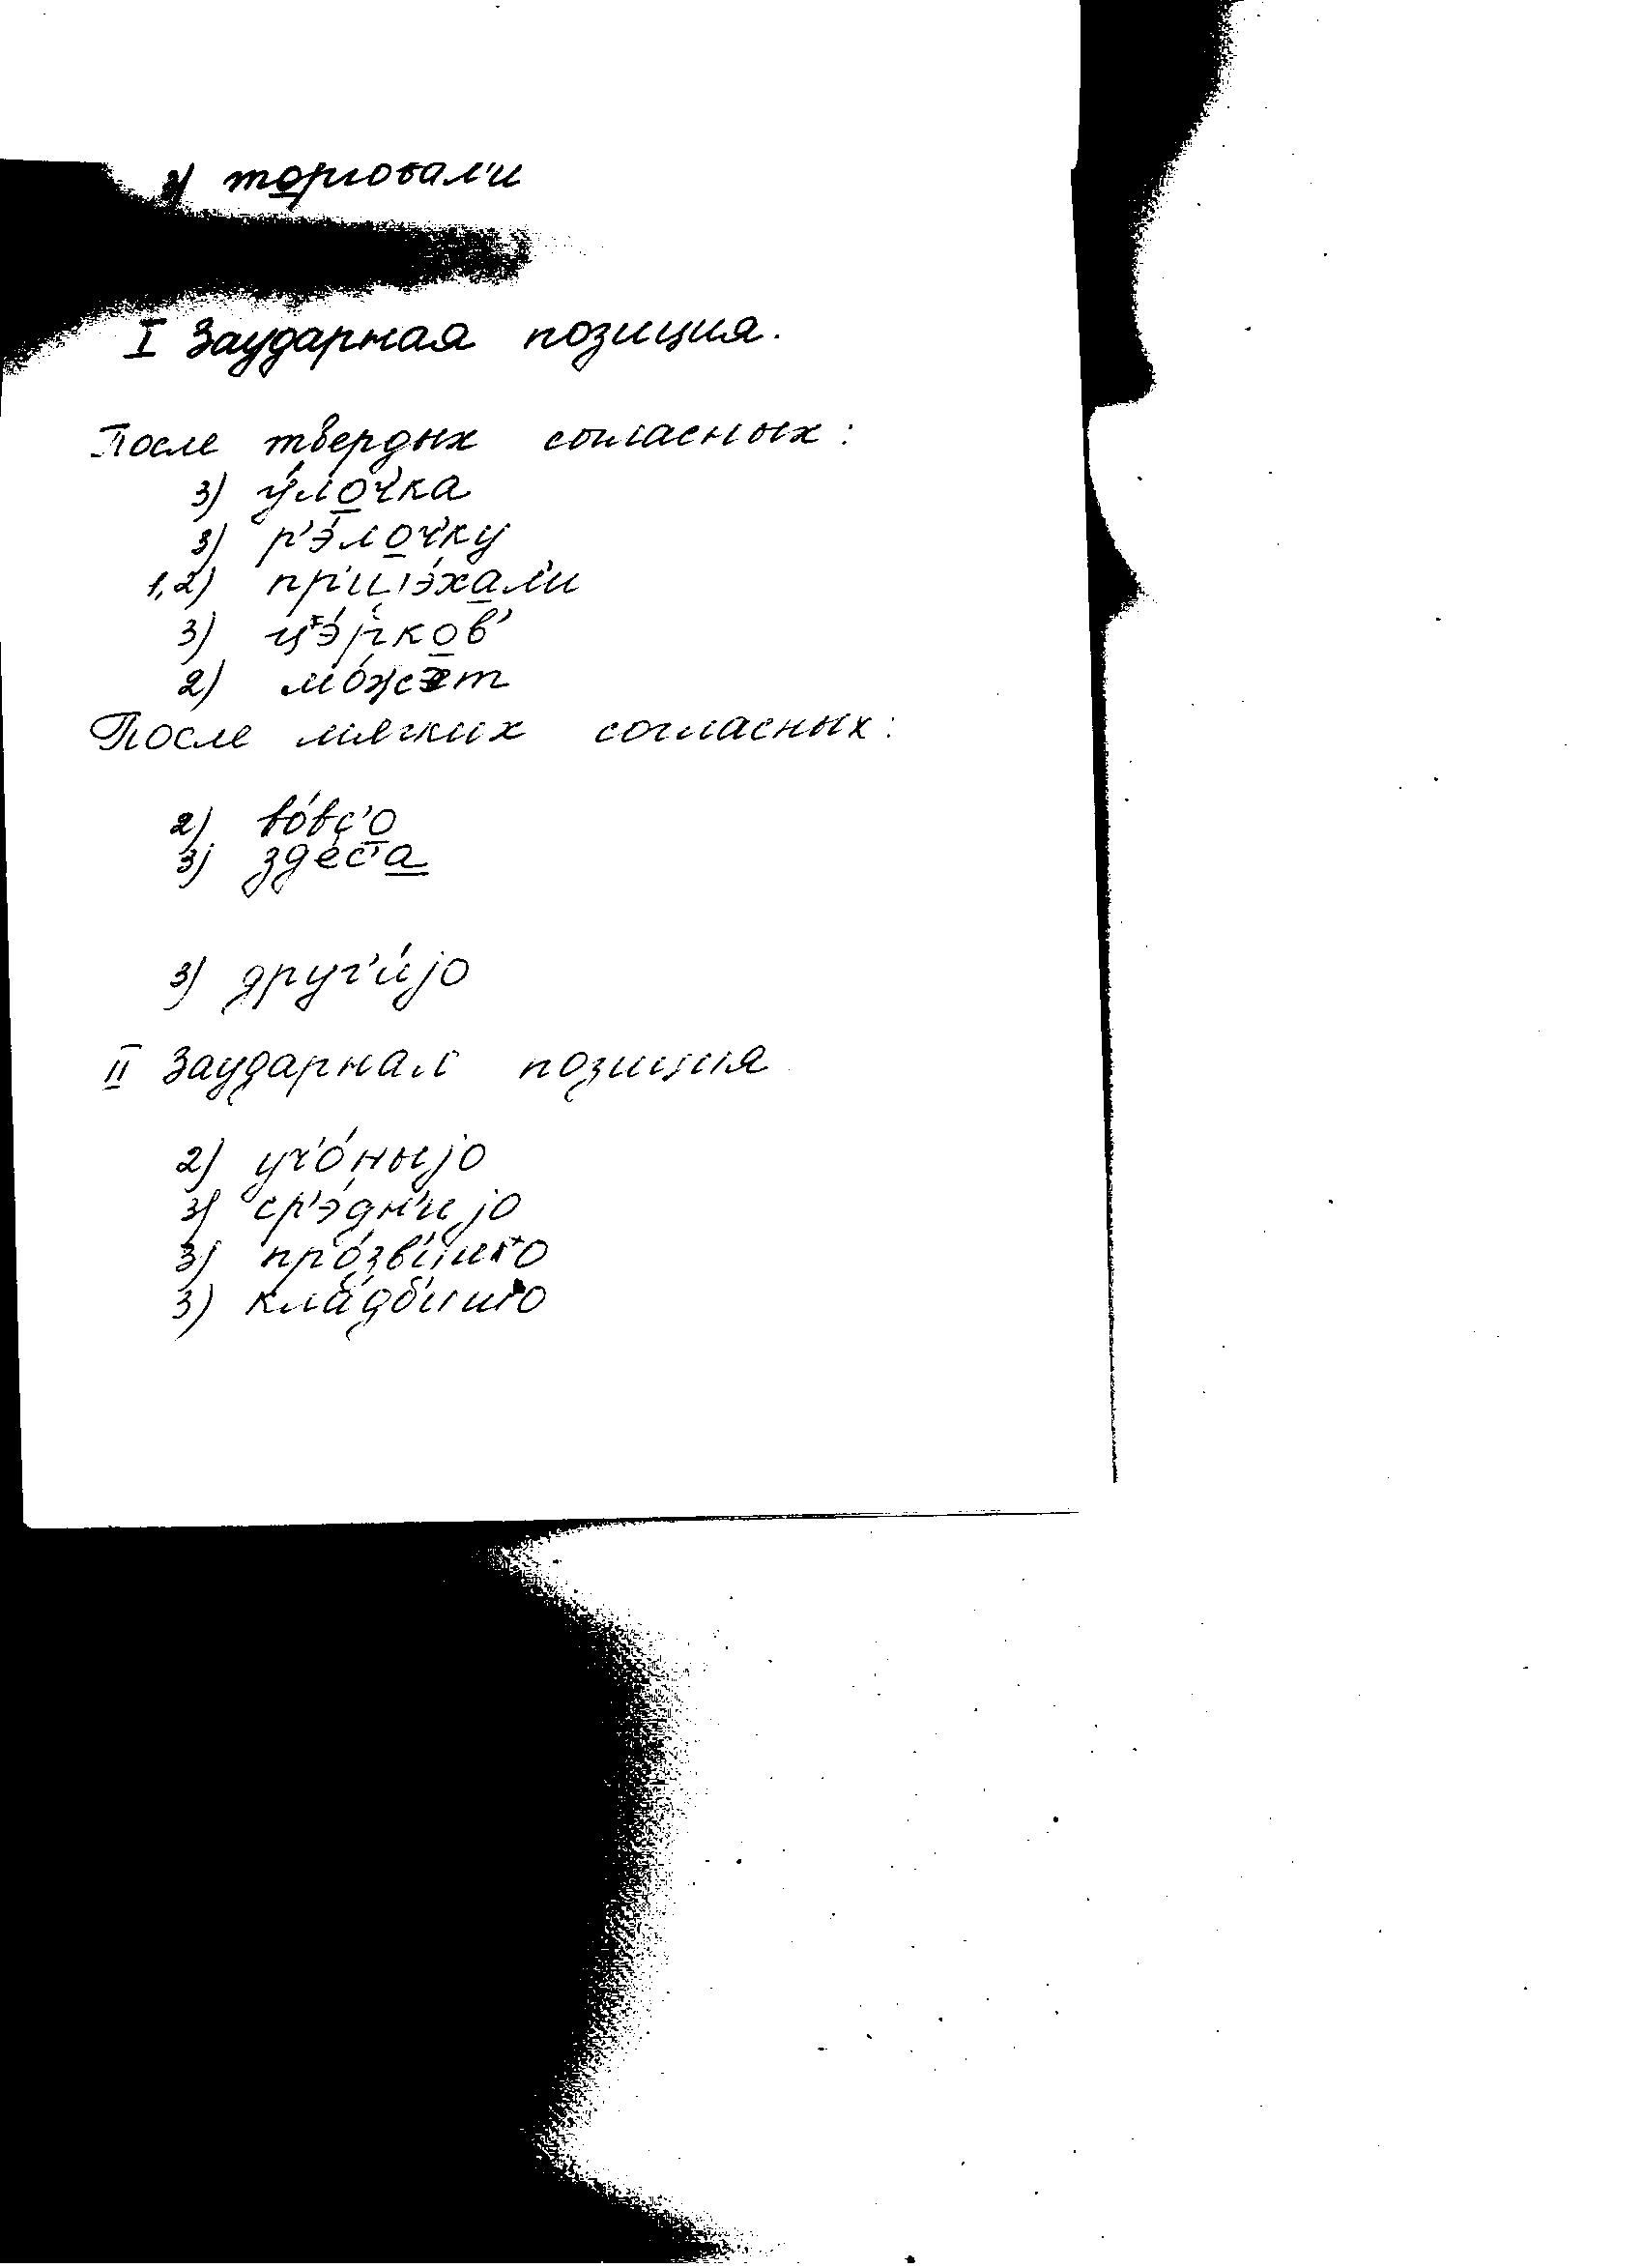 торговал'и
I Заударная позиция.
После твердых согласных:
3) у́лоч'ка
3) р'э́лоч'ку
1,2) пр'ијэ́хал'и
3) ц'э́рков'
2) мо́жэт
После мягких согласных:
2) во́вс'о
3) зде́с'а
3) друг'и́јо
II Заударная позиция
2) уч'о́ныјо
3) ср'э́дн'ијо
3) про́зв'ишо
3) кла́дб'ишо